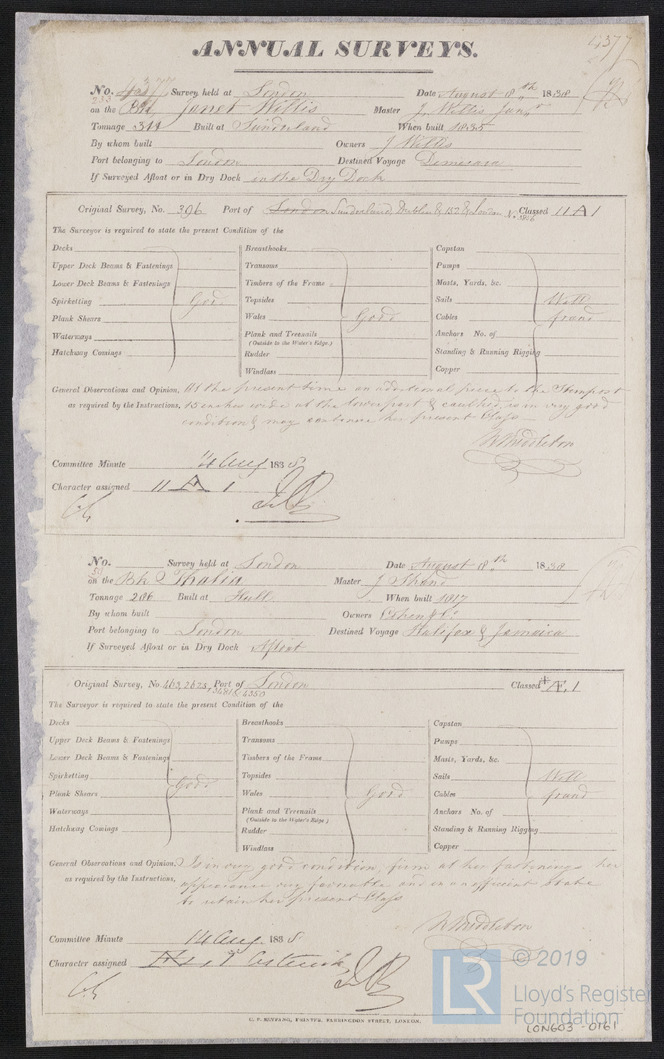 4377
ANNUAL SURVEYS.
No. 4377 Survey held at London Date August 8th 1838
on the Bk Janet Willis Master J. Willis Junr
Tonnage 311 Built at Sunderland When built 1835
By whom built Owners J Willis
Port belonging to London Destined Voyage Demerara
If Surveyed Afloat or in Dry Dock in the Dry Dock
Original Survey, No. 396 Port of London Sunderland Dublin & London Classed 11 A 1
The Surveyor is required to state the present Condition of the
Decks Breasthooks Capstan
Upper Deck Beams & Fastenings Transoms Pumps
Lower Deck Beams & Fastenings Timbers of the Frame Masts, Yards, &c.
Spirketting Good Topsides Sails Well
Plank Shears Wales Good Cables found
Waterways Plank and Treenails Anchors No. of
(Outside to the Water's Edge)
Hatchway Comings Rudder Standing & Running Rigging
Windlass Copper
General Observations and Opinion, At the present time an additional piece to the Sternpost
as required by the Instructions, 15 inches wide at the lower part & caulked, is in very good
condition & may continue her present Class
W Middleton
Committee Minute 14 Aug 1838
Character assigned 11 A 1
No. Survey held at London Date August 8th 1838
on the Bk Thalia Master J Shand
Tonnage 286 Built at Hull When built 1817
By whom built Owners Cohen & Co
Port belonging to London Destined Voyage Halifax & Jamaica
If Surveyed Afloat or in Dry Dock Afloat
Original Survey, No. 463, 2623, Port of London Classed Æ 1
The Surveyor is required to state the present Condition of the
Decks Breasthooks Capstan
Upper Deck Beams & Fastenings Transoms Pumps
Lower Deck Beams & Fastenings Timbers of the Frame Masts, Yards, &c.
Spirketting Topsides Sails Well
Plank Shears Good Wales Good Cables found
Waterways Plank and Treenails Anchors No. of
(Outside to the Water's Edge)
Hatchway Comings Rudder Standing & Running Rigging
Windlass Copper
General Observations and Opinion, Is in very good condition, firm at her fastenings her
as required by the Instructions, appearance very favorable and in an efficient state
to retain her present Class
W Middleton
Committee Minute 14 Aug. 1838
Character assigned Æ 1 Asterisk
LR
© 2019
Lloyd's Register
Foundation
LON603-0161